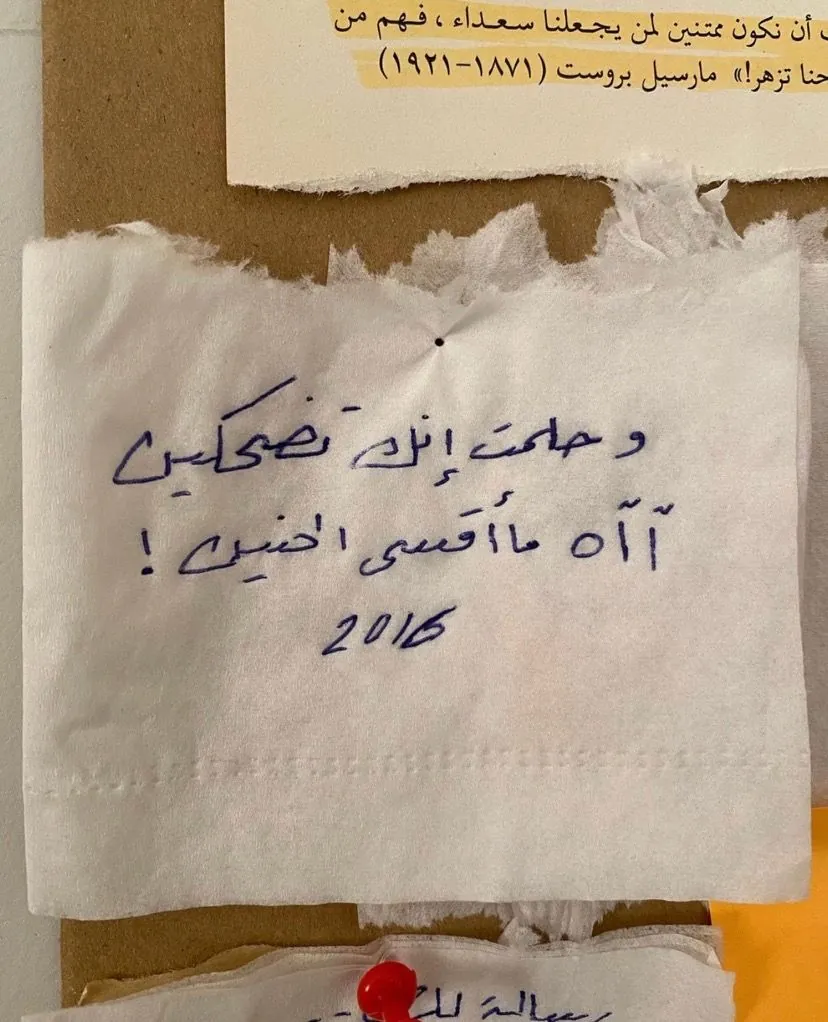 أن نكون ممتنين لمن يجعلنا سعداء ، فهم من
تزهر!» مارسيل بروست (١٨٧١-١٩٢١)
و حلمت إنك تضحكين
آآه ما أقسى الحنين !
2016
رسالة